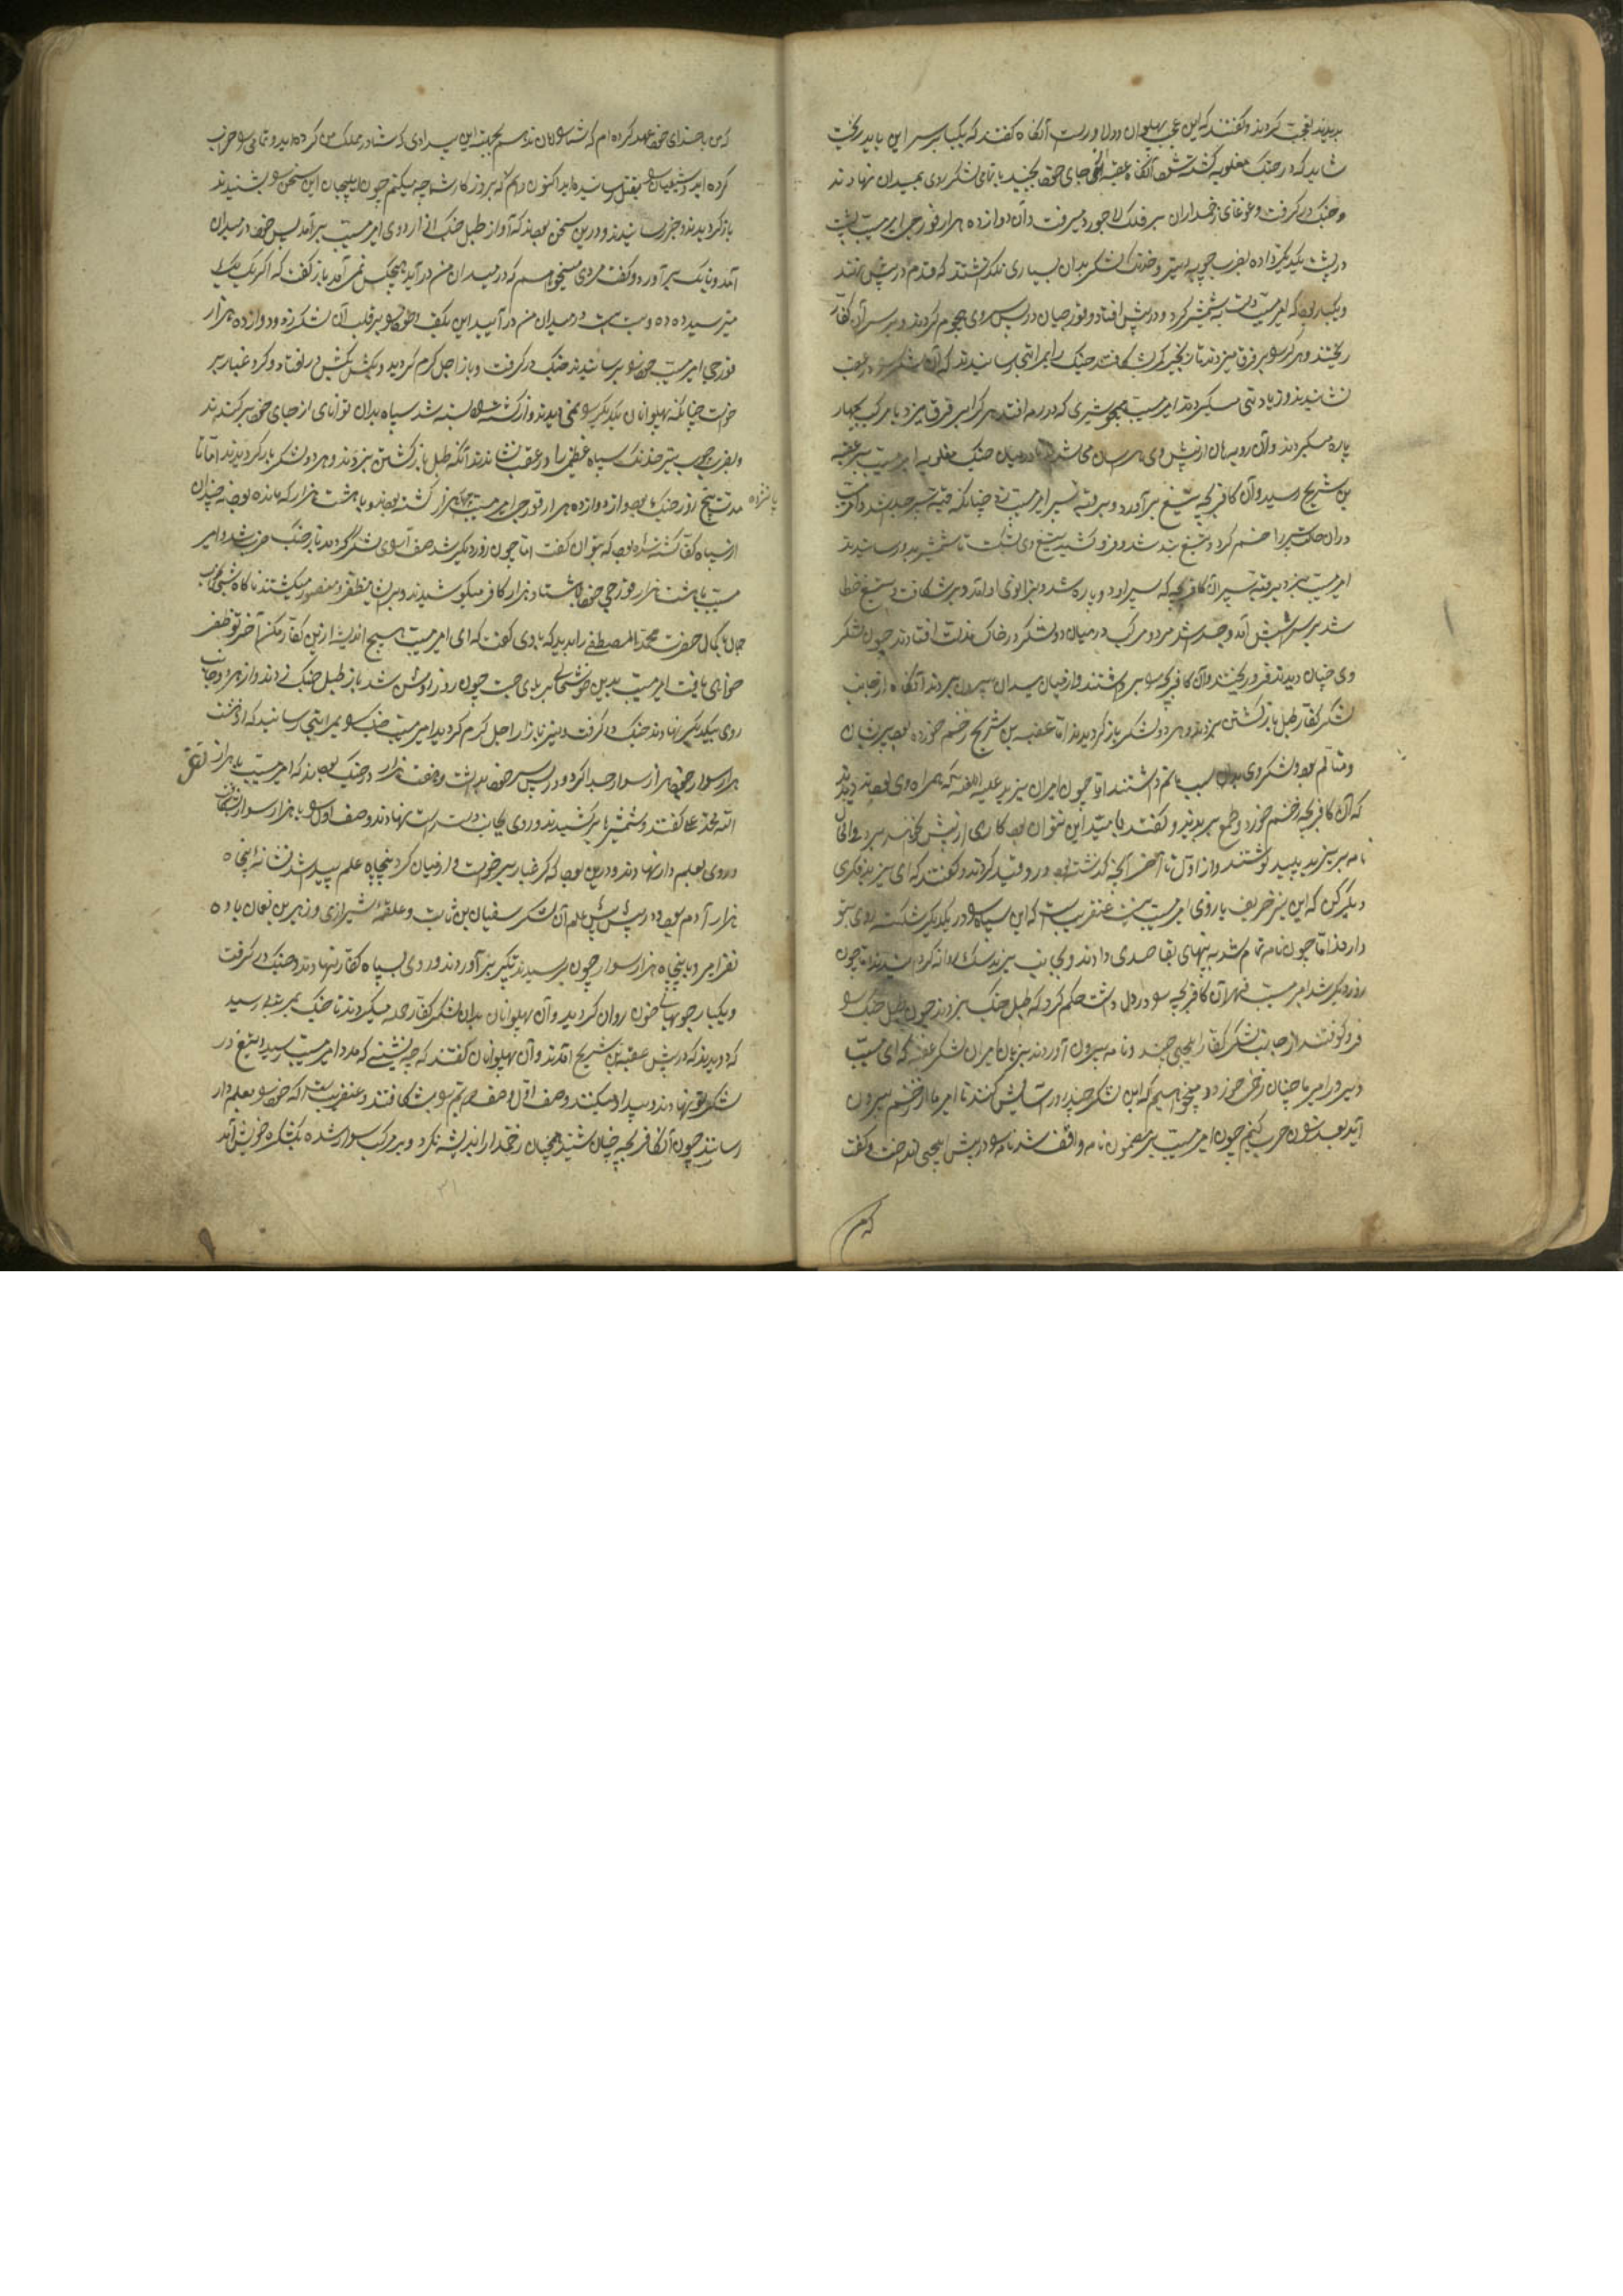 بدیدند تعجب کردند و گفتند که این عجب پهلوان دولاورست آنگاه گفتند که یکبار بر سر این باید ریخت
شاید که در جنگ مغلوبه کشته شود آنگاه عقبه از جای خود بجنبید با تمامی لشکر روی بمیدان نهادند
و جنگ در گرفت و غوغای زخمداران بر فلک لاجورد میرفت و آن دوازده هزار قورچی امیر مسیب پشت
در پشت یکدیگر داده بضرب چوبه تیر و خدنگ لشکر بدان بسیاری نگذاشتند که قدم در پیش نهند
و یکبار بود که امیر مسیب دست به شمشیر کرد و در پیش افتاد و قورچیان در پس وی هجوم کردند و بر سر آن کفار
ریختند و هر کرا بر فرق میزدند تا زنجیر کمر بشکافتند جنگ را بمرتبتی رسانیدند که آن لشکر را در عقب
نشانیدند و زیادتی میکردند امیر مسیب همچو شیری که در رمه افتد هر کرا بر فرق میزد با مرکب چهار
پاره میکردند و آن روبهان از پیش وی هراسان می شدند تا در میان جنگ مغلوبه امیر مسیب بر عقبه
بن شریح رسید و آن کافر بچه تیغ برآورد و بر قبه سپر امیر مسیب زد چنانکه قبه سپر جدا شد و امیر مسیب
در آن حالت سپر را خم کرد و تیغ بند شد و فرو کشید تیغ وی شکست تا شمشیر بدو رسانیدند
امیر مسیب بزد بر قبه سپر آن کافر بچه که سپر او دو پاره شد و بزانوی او آمد و بر شکافت و تیغ خطا
شد بر سر اسپش آمد و جدا شد مرد و مرکب در میان دو لشکر در خاک مذلت افتادند چون لشکر
وی چنان دیدند فرو ریختند و آن کافر بچه را برداشتند و از میان میدان بیرون بردند آنگاه از جانب
لشکر کفار طبل بازگشتن بزدند و هر دو لشکر باز گردیدند اما عقبه بن شریح زخم خورده بود پریشان
و متألم بود و لشکر وی بدان سبب ماتم داشتند اما چون امیران یزید علیه اللعنه که همراه وی بودند دیدند
که آن کافر بچه زخم خورد و طمع ببریدند و گفتند با مسیب این نتوان بود کاری از پیش نخواهد برد والحال
نامه بر یزید پلید نوشتند و از اول تا آخر آنچه گذشته بود در و قید کردند و گفتند که ای یزید فکری
دیگر کن که این نیز حریف بازوی امیر مسیب نیست عنقریبست که این سپاه را در یکدیگر شکسته روی بتو
دارد اما چون نامه تمام شد به پنهانی بقاصدی دادند و بجانب یزید سگ روانه کردانیدند اما چون
روز دیگر شد امیر مسیب قهر آن کافر بچه را در دل داشت حکم کرد که طبل جنگ بزدند چون طبل جنگ را
فرو کوفتند از جانب لشکر کفار ایلچیی چند و نامه بیرون آوردند بزبان امیران لشکر عقبه که ای مسیب
دیروز امیر ما چنان زخمی خورد و میخواهیم که این لشکر چند روز آسایش کنند تا امیر ما از زخم بیرون
آید بعد ازان حرب کنیم چون امیر مسیب بر مضمون نامه واقف شد نامه را در پیش ایلچی انداخت و گفت
که من
که من با خدای خود عهد کرده ام که شما را امان ندهم بجهت این بیدادی که شما در ملک من کرده اید و تمامی را خراب
کرده اید و شیعیان را بقتل رسانیده اید اکنون دانم که بروزگار شما چه میکنم چون ایلچیان این سخن را بشنیدند
باز گردیدند و خبر رسانیدند و در این سخن بودند که آواز طبل جنگ از اردوی امیر مسیب برآمد پس خود در میدان
آمد و بانگ برآورد و گفت مردی میخواهم که در میدان من در آید هیچکس نمی آمد باز گفت که اگر یک یک
میترسید ده ده و بیست بیست در میدان من در آیید این بگفت و خود را بر قلب آن لشکر زد و دوازده هزار
قورچی امیر مسیب خود را بر رسانیدند جنگ در گرفت و بازار اجل گرم گردید و بکش بکش در افتاد و گرد غبار بر
خواست چنانکه پهلوانان یکدیگر را نمی دیدند و از کشته پشته شد سپاه بدان توانای از جای خود برکندند
و بضرب چوب تیر خدنگ سپاه عظیمی را در عقب نشاندند آنگه طبل بازگشتن بزدند و هر دو لشکر باز گردیدند اما تا
مدت پنج روز جنگ بود و از دوازده هزار قورچی امیر مسیب چهار هزار کشته بودند و با هشت هزار که مانده بود نه چندان
پانزده
از سپاه کفار کشته شده بود که بتوان گفت اما چون روز دیگر شد صف آرای لشکر گردید باز جنگ حرب شد و امیر
مسیب با هشت هزار قورچی خود با هشتاد هزار کافر میکوشیدند و بر آن مظفر و منصور میگشتند ناگاه شبی بخواب
جمال با کمال حضرت محمد المصطفی را بدید که با وی گفت که ای امیر مسیب هیچ اندیشه ازین کفار مکن آخر تو ظفر
خواهی یافت امیر مسیب بدین خوشحالی بر پای جست چون روز روشن شد باز طبل جنگ زدند و از هر دو جانب
روی بیکدیگر نهادند جنگ در گرفت و نیز بازار اجل گرم گردید امیر مسیب جنگ را بمرتبتی رسانید که از هشت
هزار سوار خود هزار سوار جدا کرد و در پس سر خود بداشت و هفت هزار در جنگ بودند که امیر مسیب با هزار نه تعره
الله محمد علی گفتند و شمشیرها برکشیدند و روی بجانب دست راست نهادند و صف اول را با هزار سوار بشکافت
و روی بعلم دار نهادند و درین بود که گرد غبار برخواست و از میان گرد پنجاه علم پیدا شد نشانه پنجاه
هزار آدم بود و در پیش پیش علم آن لشکر سفیان بن ثابت و علقمه شیرازی و زهیر بن نعمان با ده
نفر امیر و با پنجاه هزار سوار چون برسیدند تکبیر برآوردند و روی بسپاه کفار نهادند و جنگ در گرفت
و یکبار جویهای خون روان گردید و آن پهلوانان بدان لشکر کفار حمله میکردند تا جنگ بمرتبه رسید
که دویدند که در پیش عقبه بن شریح آمدند و آن پهلوانان گفتند که چه نشستی که مدد امیر مسیب رسید و تیغ در
لشکر تو نهادند و بیداد میکنند و صف اول و صف دهم را بشکافتند و عنقریبست که خود را بعلم دار
رسانند چون آن کافر بچه چنان شنید همچنان زخمدار اندیشه نکرد و بر مرکب سوار شده بلشکرگاه خویش آمد
۳۱